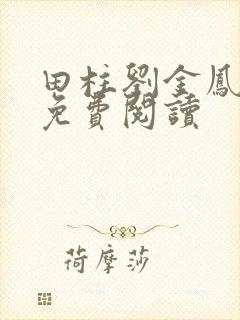 田柱劉金鳳
免費閱讀
荷摩莎